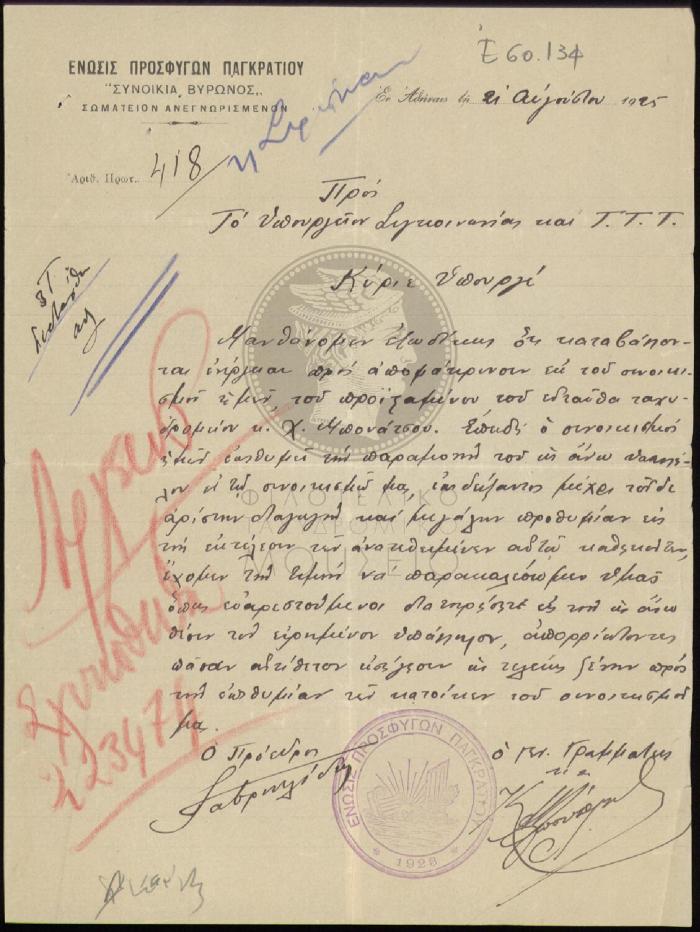 Ε 60.134
ΕΝΩΣΙΣ ΠΡΟΣΦΥΓΩΝ ΠΑΓΚΡΑΤΙΟΥ
"ΣΥΝΟΙΚΙΑ ΒΥΡΩΝΟΣ"
ΣΩΜΑΤΕΙΟΝ ΑΝΕΓΝΩΡΙΣΜΕΝΟΝ
Ἐν Ἀθήναις τῇ 21 Αὐγούστου 1925
Ἀριθ. Πρωτ. 418
Πρός
Τό Ὑπουργεῖον Συγκοινωνίας καί Τ.Τ.Τ.
Κύριε Ὑπουργέ
Μανθάνομεν ἐξωδίκως ὅτι καταβάλον-
ται ἐνέργειαι πρός ἀπομάκρυνσιν ἐκ τοῦ συνοικι-
σμοῦ ἡμῶν, τοῦ προϊσταμένου τοῦ ἐνταῦθα ταχυ-
δρομείου κ. Χ. Μπονάτσου. Ἐπειδή ὁ συνοικισμός
ἡμῶν ἐπιθυμεῖ τήν παραμονήν τοῦ ὡς ἄνω ὑπαλλή-
λου εἰς τόν συνοικισμόν μας, ἐπιδείξαντος μέχρι τοῦδε
ἀρίστην διαγωγήν καί μεγάλην προθυμίαν εἰς
τήν ἐκτέλεσιν τῶν ἀνατεθειμένων αὐτῷ καθηκόντων,
ἔχομεν τήν τιμήν νά παρακαλέσωμεν ὑμᾶς
ὅπως εὐαρεστούμενοι διατηρήσητε εἰς τήν ὡς ἄνω
θέσιν τόν εἰρημένον ὑπάλληλον, ἀπορρίπτοντες
πᾶσαν ἀντίθετον εἰσήγησιν ὡς τελείως ξένην πρός
τήν ἐπιθυμίαν τῶν κατοίκων τοῦ συνοικισμοῦ
μας.
Ὁ Πρόεδρος
ὁ Γεν. Γραμματεύς
ΕΝΩΣΙΣ ΠΡΟΣΦΥΓΩΝ ΠΑΓΚΡΑΤΙΟΥ
1923
ΦΙΛΟΤΕΛΙΚΟ
ΤΑΧΥΔΡΟΜΙΚΟ
ΜΟΥΣΕΙΟ
Ἀρχεῖον
23474